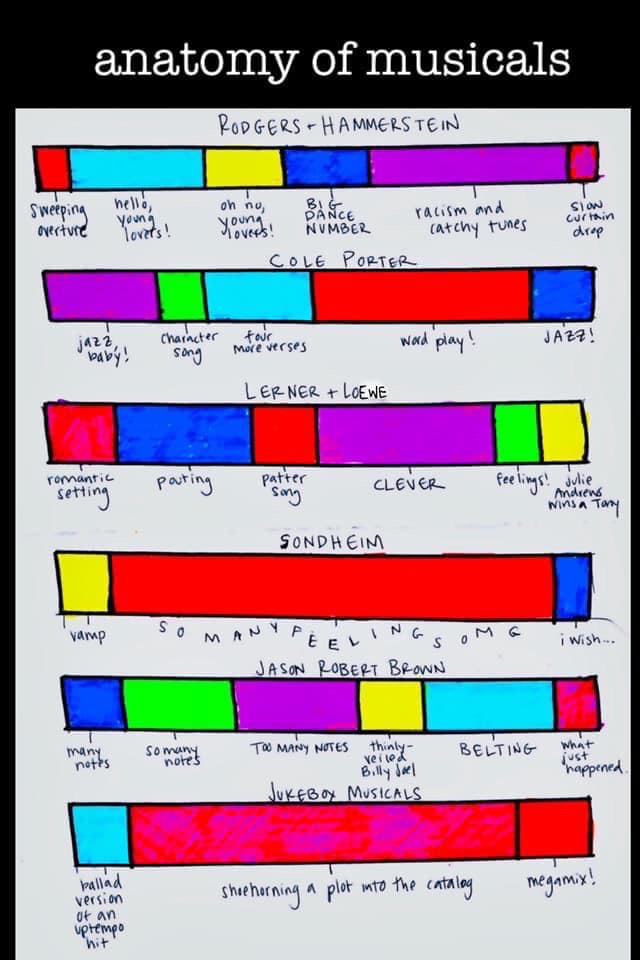 anatomy of musicals
RODGERS + HAMMERSTEIN
sweeping
overture
hello,
young
lovers!
oh no,
young
lovers!
BIG
DANCE
NUMBER
racism and
catchy tunes
slow
curtain
drop
COLE PORTER
jazz,
baby!
character
song
four
more verses
word play!
JAZZ!
LERNER + LOEWE
romantic
setting
pouting
patter
song
CLEVER
feelings!
Julie
Andrews
wins a Tony
SONDHEIM
vamp
SO MANY FEELINGS OMG
i wish...
JASON ROBERT BROWN
many
notes
so many
notes
TOO MANY NOTES
thinly-
veiled
Billy Joel
BELTING
what
just
happened.
JUKEBOX MUSICALS
ballad
version
of an
uptempo
hit
shoehorning a plot into the catalog
megamix!